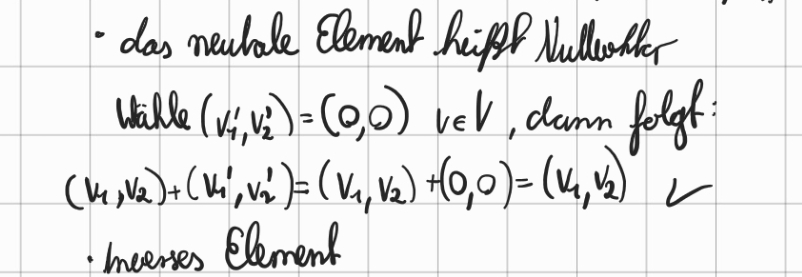 · das neutrale Element heißt Nullvektor
Wähle (v₁', v₂') = (0,0) v∈V, dann folgt:
(v₁, v₂) + (v₁', v₂') = (v₁, v₂) + (0,0) = (v₁, v₂) ✓
· Inverses Element